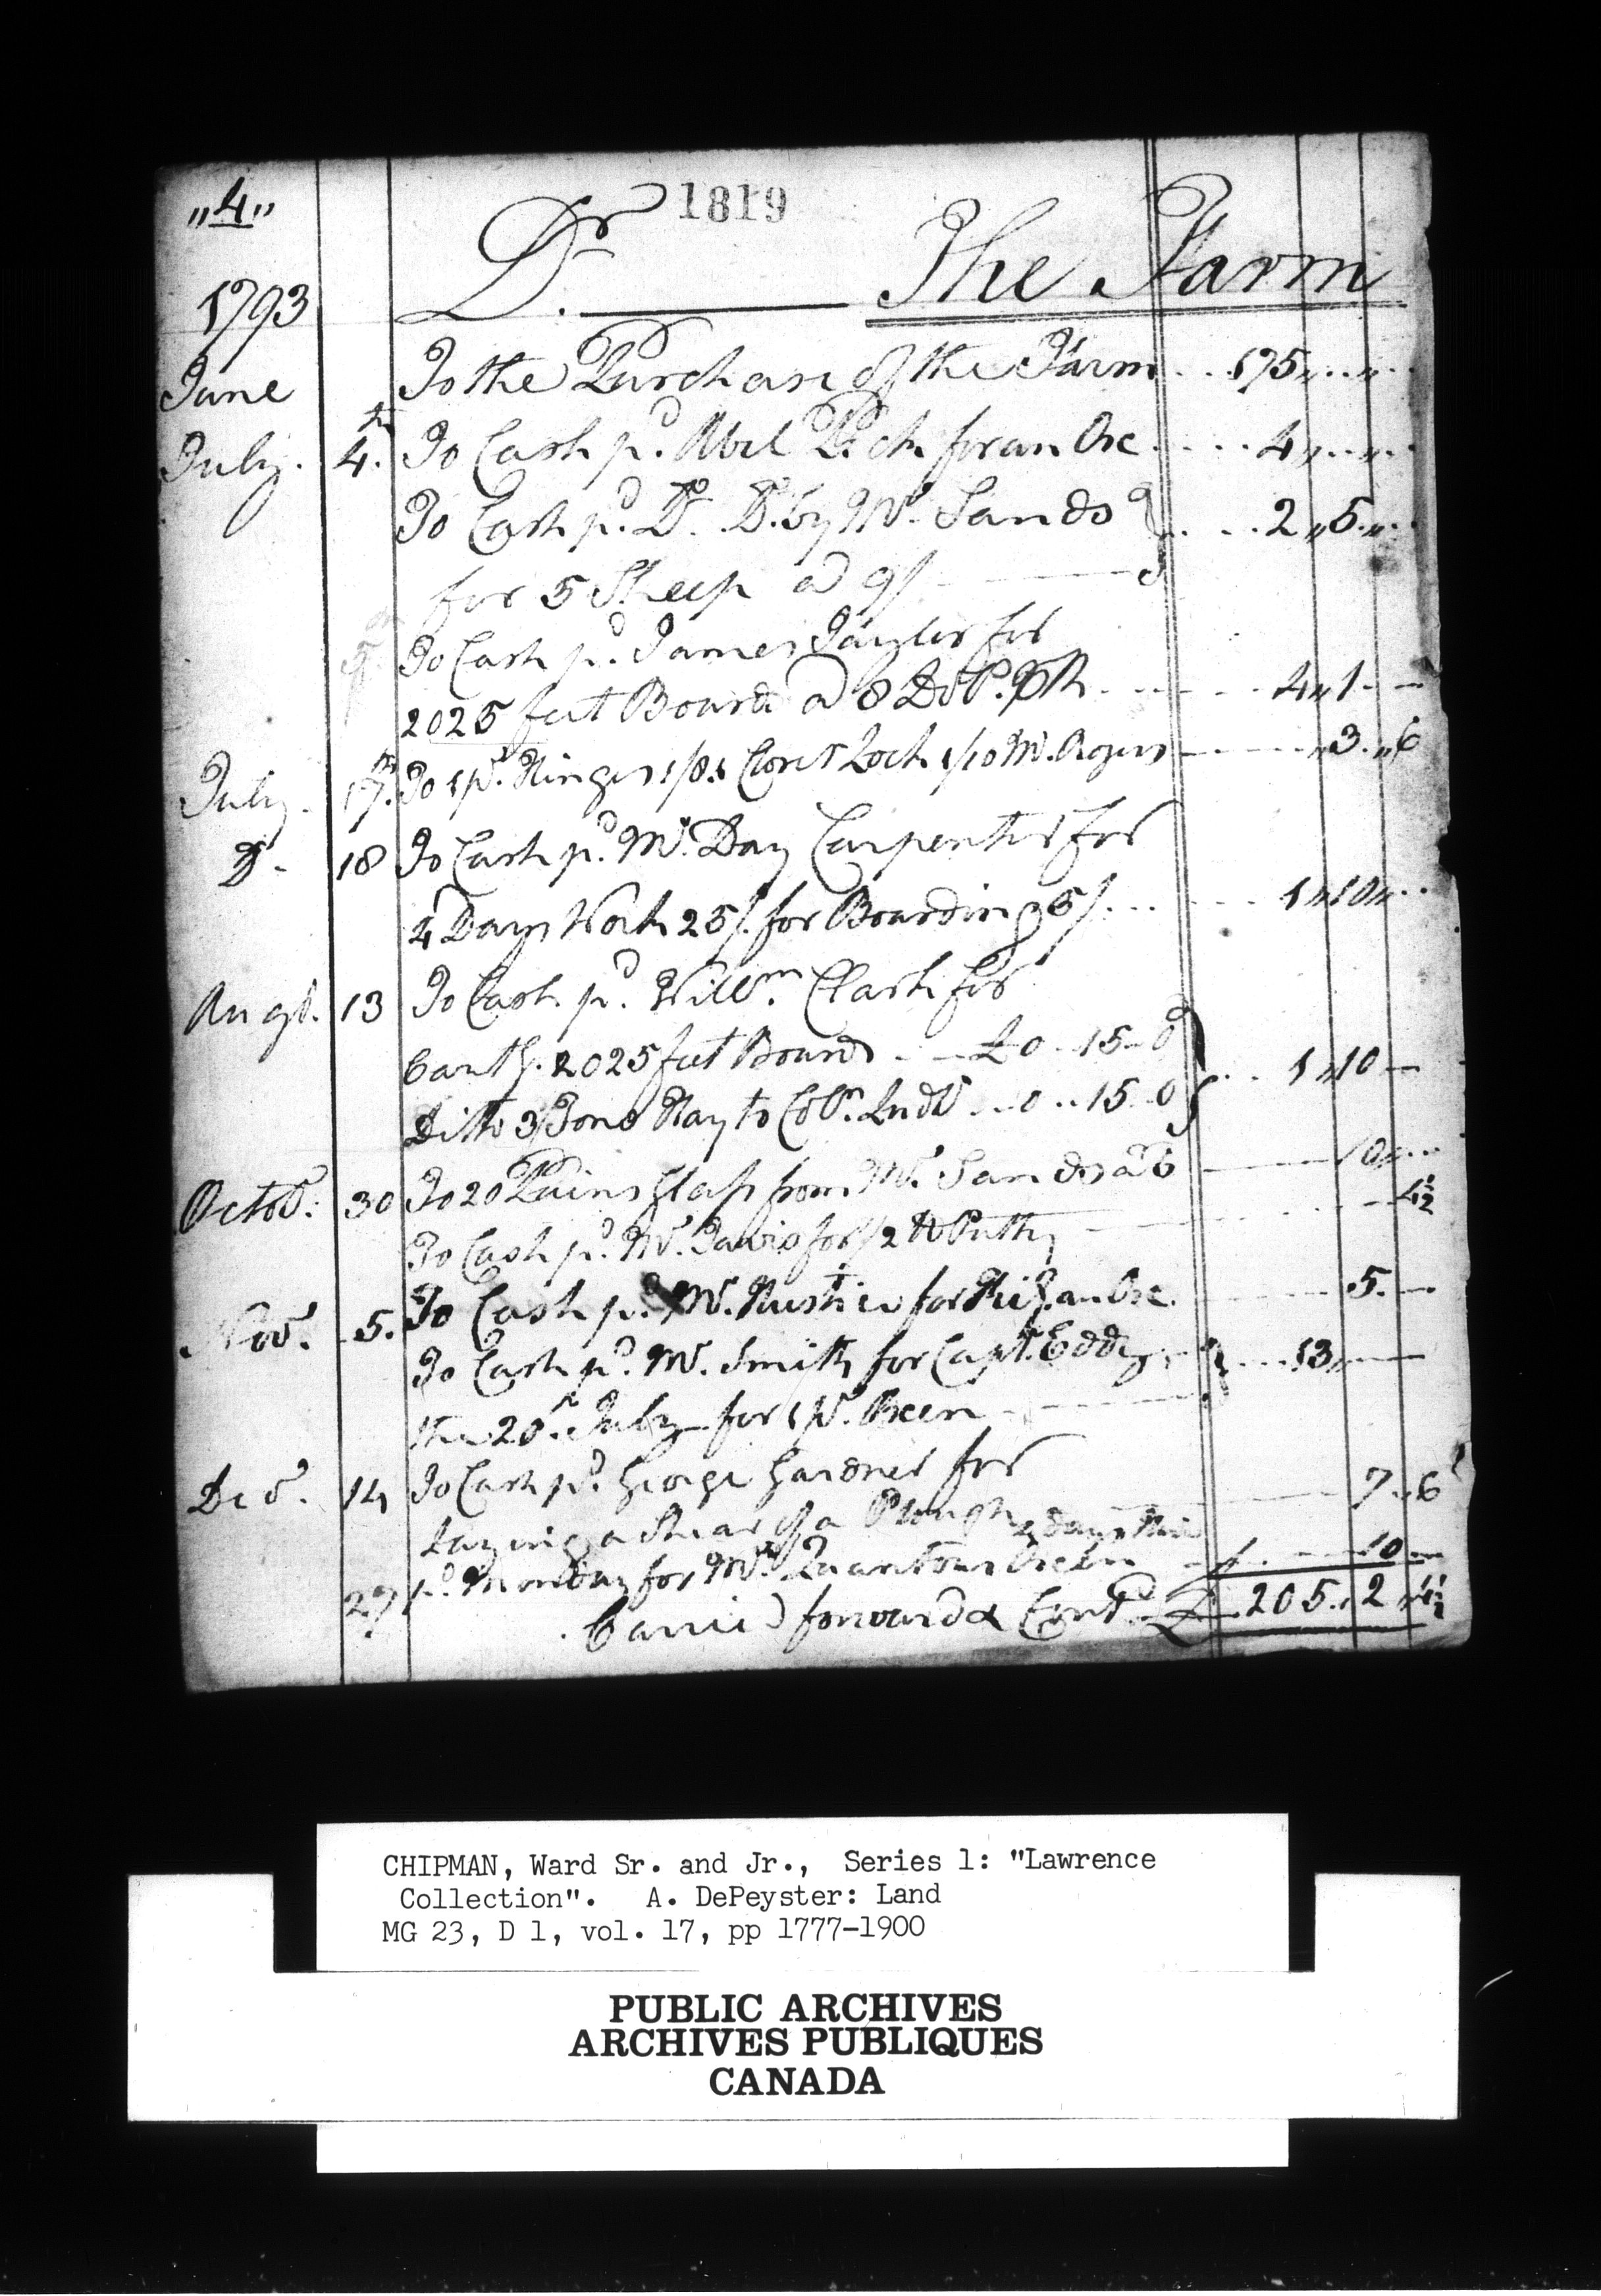 "4"
1819
Dr. The Farm
1793
June To the Purchase of the Farm 175
July. 4.th To Cash pd. Abel for an Oxe 4
To Cash pd. Do. Do. by Mr. Sands 2 5
for 5 Sheep a 9/
5 To Cash pd. James Taylor for
2025 feet Board a 8 Dos. 4 1
July 17.th To 1 pr. Hinges 1/8. 1 Closet Lock 1/10 Mr. Rogers 3 6
Do. 18 To Cash pd. Mr. Day Carpenter for
4 Days Work 25/. for Boarding 5/. 1 10
Augt. 13 To Cash pd. Willm. Clark for
Cartg. 2025 feet Board £0 15 0
Ditto 3 Tons Hay to Coln. Ludw 0 15 0 1 10
Octob: 30 To 20 Pains Glass from Mr. Sands a 6 10
To Cash pd. Mr. Davis for 1/2 lb Putty 4½
Nov. 5. To Cash pd. Mr. for an Oxe. 5
To Cash pd. Mr. Smith for Capt. Eddy
the 20th. July for 1 pr. Oxen 13
Decr. 14 To Cash pd. George Gardner for
Laying a Shear of a Plough 7 6
2 days
27 pd. for Mr. Oxen 10
Carried forward & Contd. £ 205 2 4½
CHIPMAN, Ward Sr. and Jr., Series 1: "Lawrence
Collection". A. DePeyster: Land
MG 23, D 1, vol. 17, pp 1777-1900
PUBLIC ARCHIVES
ARCHIVES PUBLIQUES
CANADA